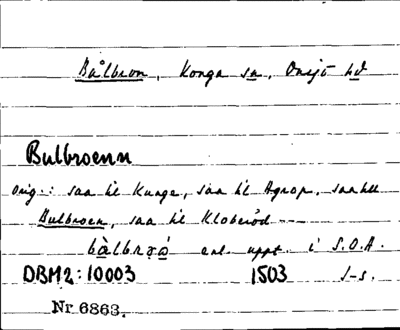 Bålbron, Konga sn, Onsjö hd
Bulbroenn
orig.: saa til Kunge, saa til Agrop, saa till
Bulbroen, saa til Kloberöd
enl. uppt. i S.O.A.
DBM2:10003 1503 J-s.
Nr 6863.